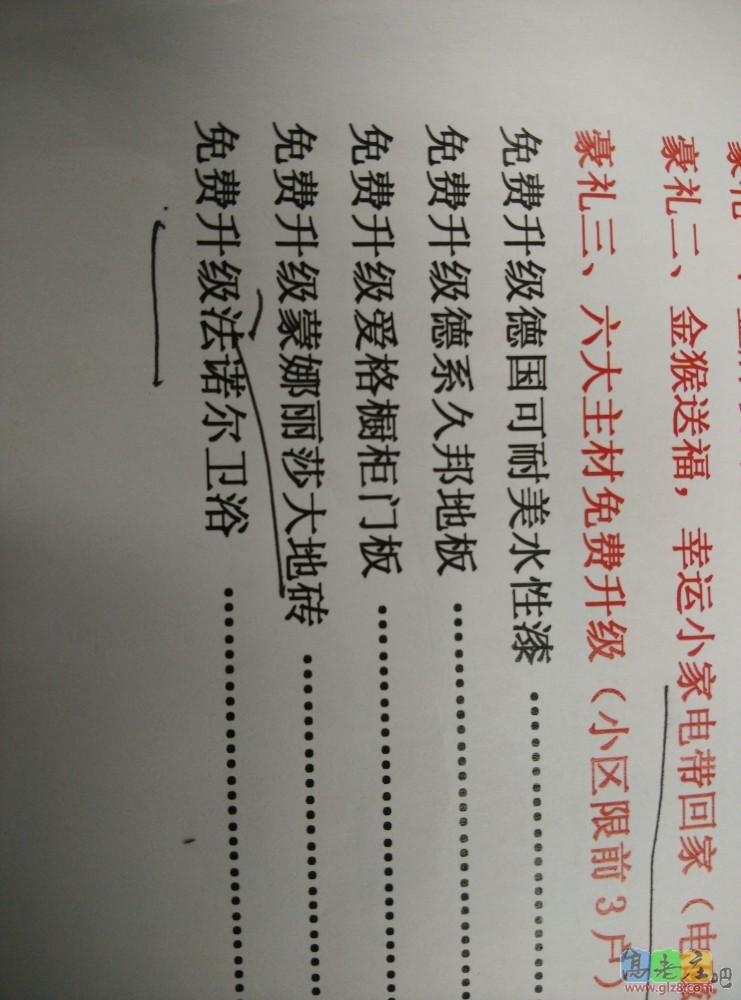 豪礼二、金猴送福，幸运小家电带回家（电
豪礼三、六大主材免费升级（小区限前3户）
免费升级德国可耐美水性漆
免费升级德系久邦地板
免费升级爱格橱柜门板
免费升级蒙娜丽莎大地砖
免费升级法诺尔卫浴
高老庄吧
www.glz8.com